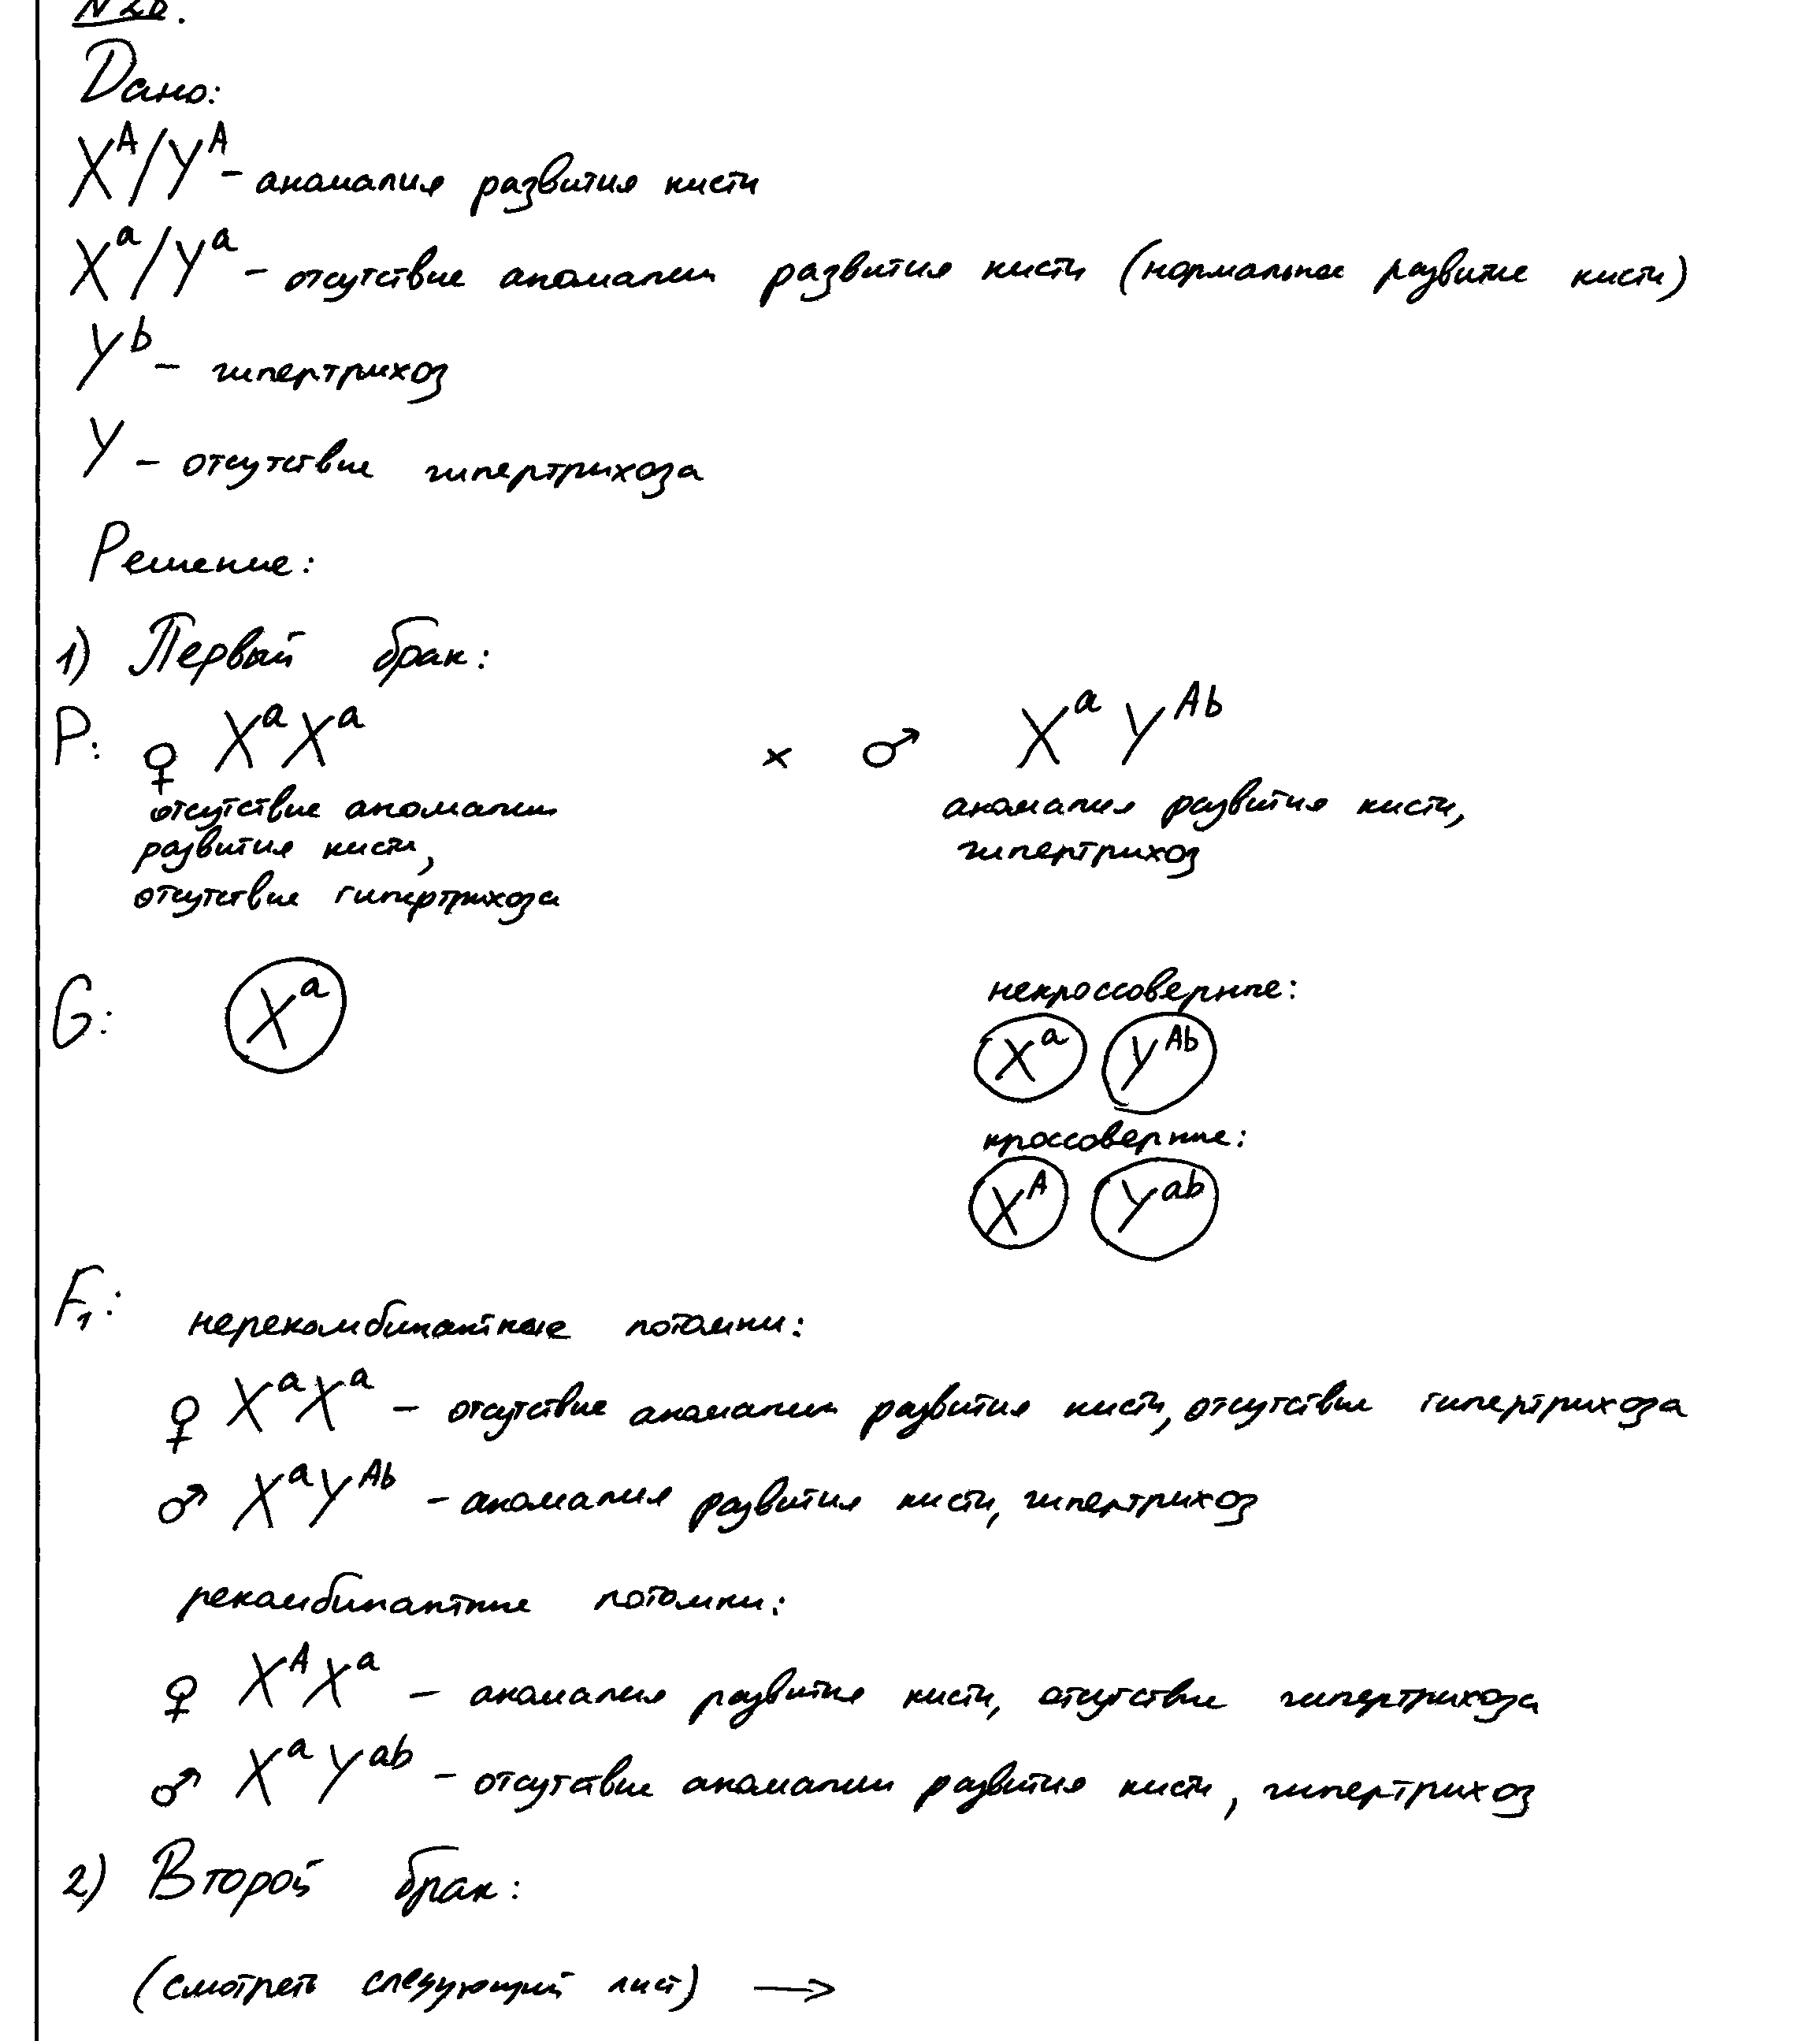 N28.
Дано:
X^A/Y^A – аномалия развития кисти
X^a/Y^a – отсутствие аномалии развития кисти (нормальное развитие кисти)
Y^b – гипертрихоз
Y – отсутствие гипертрихоза
Решение:
1) Первый брак:
P: ♀ X^a X^a × ♂ X^a Y^Ab
отсутствие аномалии развития кисти, отсутствие гипертрихоза
аномалия развития кисти, гипертрихоз
G: X^a
некроссоверные:
X^a Y^Ab
кроссоверные:
X^A Y^ab
F₁: нерекомбинантные потомки:
♀ X^a X^a – отсутствие аномалии развития кисти, отсутствие гипертрихоза
♂ X^a Y^Ab – аномалия развития кисти, гипертрихоз
рекомбинантные потомки:
♀ X^A X^a – аномалия развития кисти, отсутствие гипертрихоза
♂ X^a Y^ab – отсутствие аномалии развития кисти, гипертрихоз
2) Второй брак:
(смотреть следующий лист) →